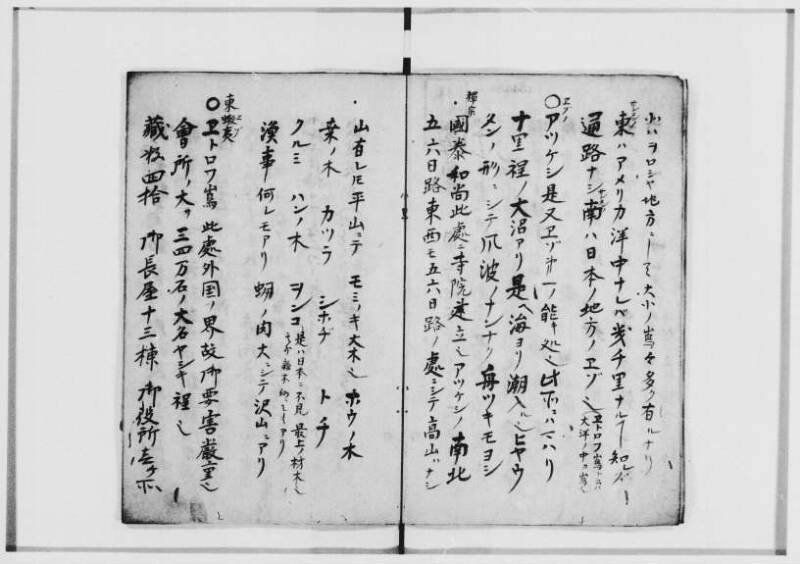 北ハヲロシヤ地方ニシテ大小ノ嶌々多ク有ルナリ
東ハアメリカ洋中ナレバ幾千里ナルヿ知ズ
通路ナシ南ハ日本ノ地方ノヱゾ也
ヱトロフ嶌
大洋ノ中ノ嶌
○アツケシ是又ヱゾ
一ノ能キ処也
十里程ノ大沼アリ是ヘ海ヨリ潮入ル也ヒヤウ
タンノ形ニシテ爪波ノナンナク舟ツキモヨシ
禅宗
・國泰和尚此處ニ寺院建立也アツケシノ南北
五六日路東西モ五六日路ノ處ニシテ高山ハナシ
・山有レ𪜈平山ニテモミノキ大木也ホウノ木
桒ノ木 カツラ シホヂ トチ
クルミ ハンノ木 ヲンコ
是ハ日本ニ不見最上ノ材木也
漁事何レモアリ 蜊ノ肉大ニシテ沢山ニアリ
東蝦夷
○ヱトロフ嶌此處外国ノ界故御要害嚴重也
會所ノ大サ三四万石ノ大名ヤシキ程也
藏数四拾 御長屋十三棟 御役所